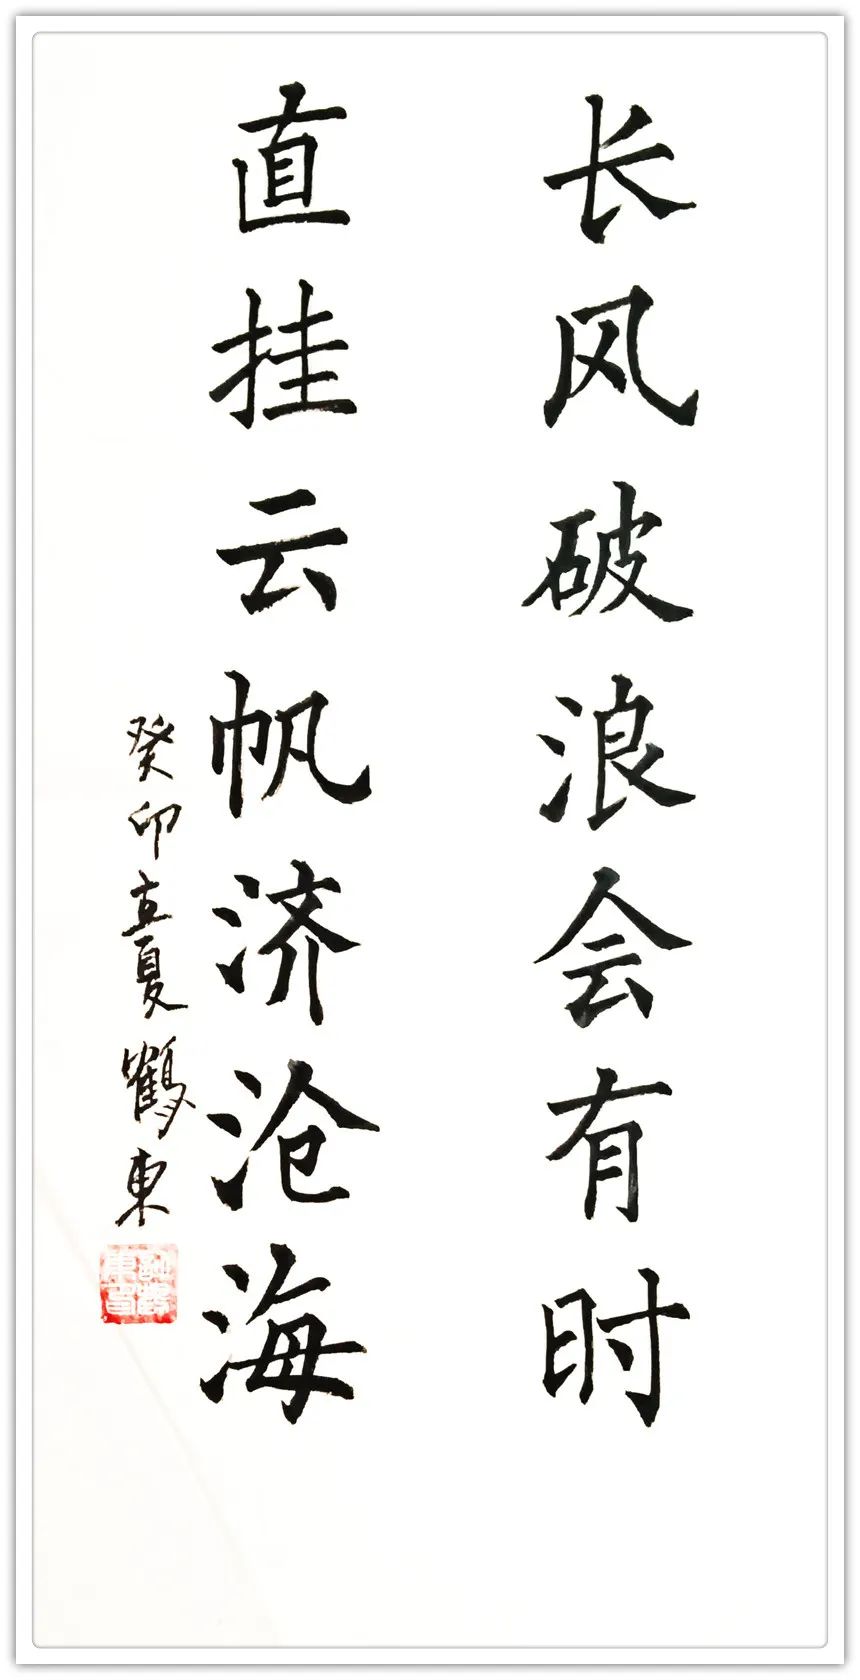 长风破浪会有时
直挂云帆济沧海
癸卯立夏鹤东